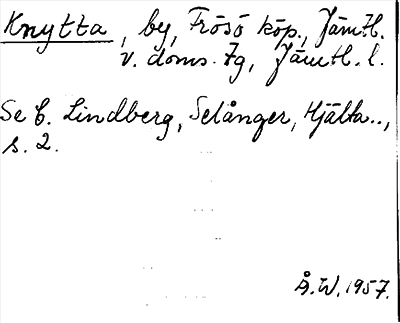 Knytta, by, Frösö köp., Jämtl.
v. doms. tg, Jämtl. l.
Se C. Lindberg, Selånger, Hjälta..,
s. 2.
Å.W. 1957.